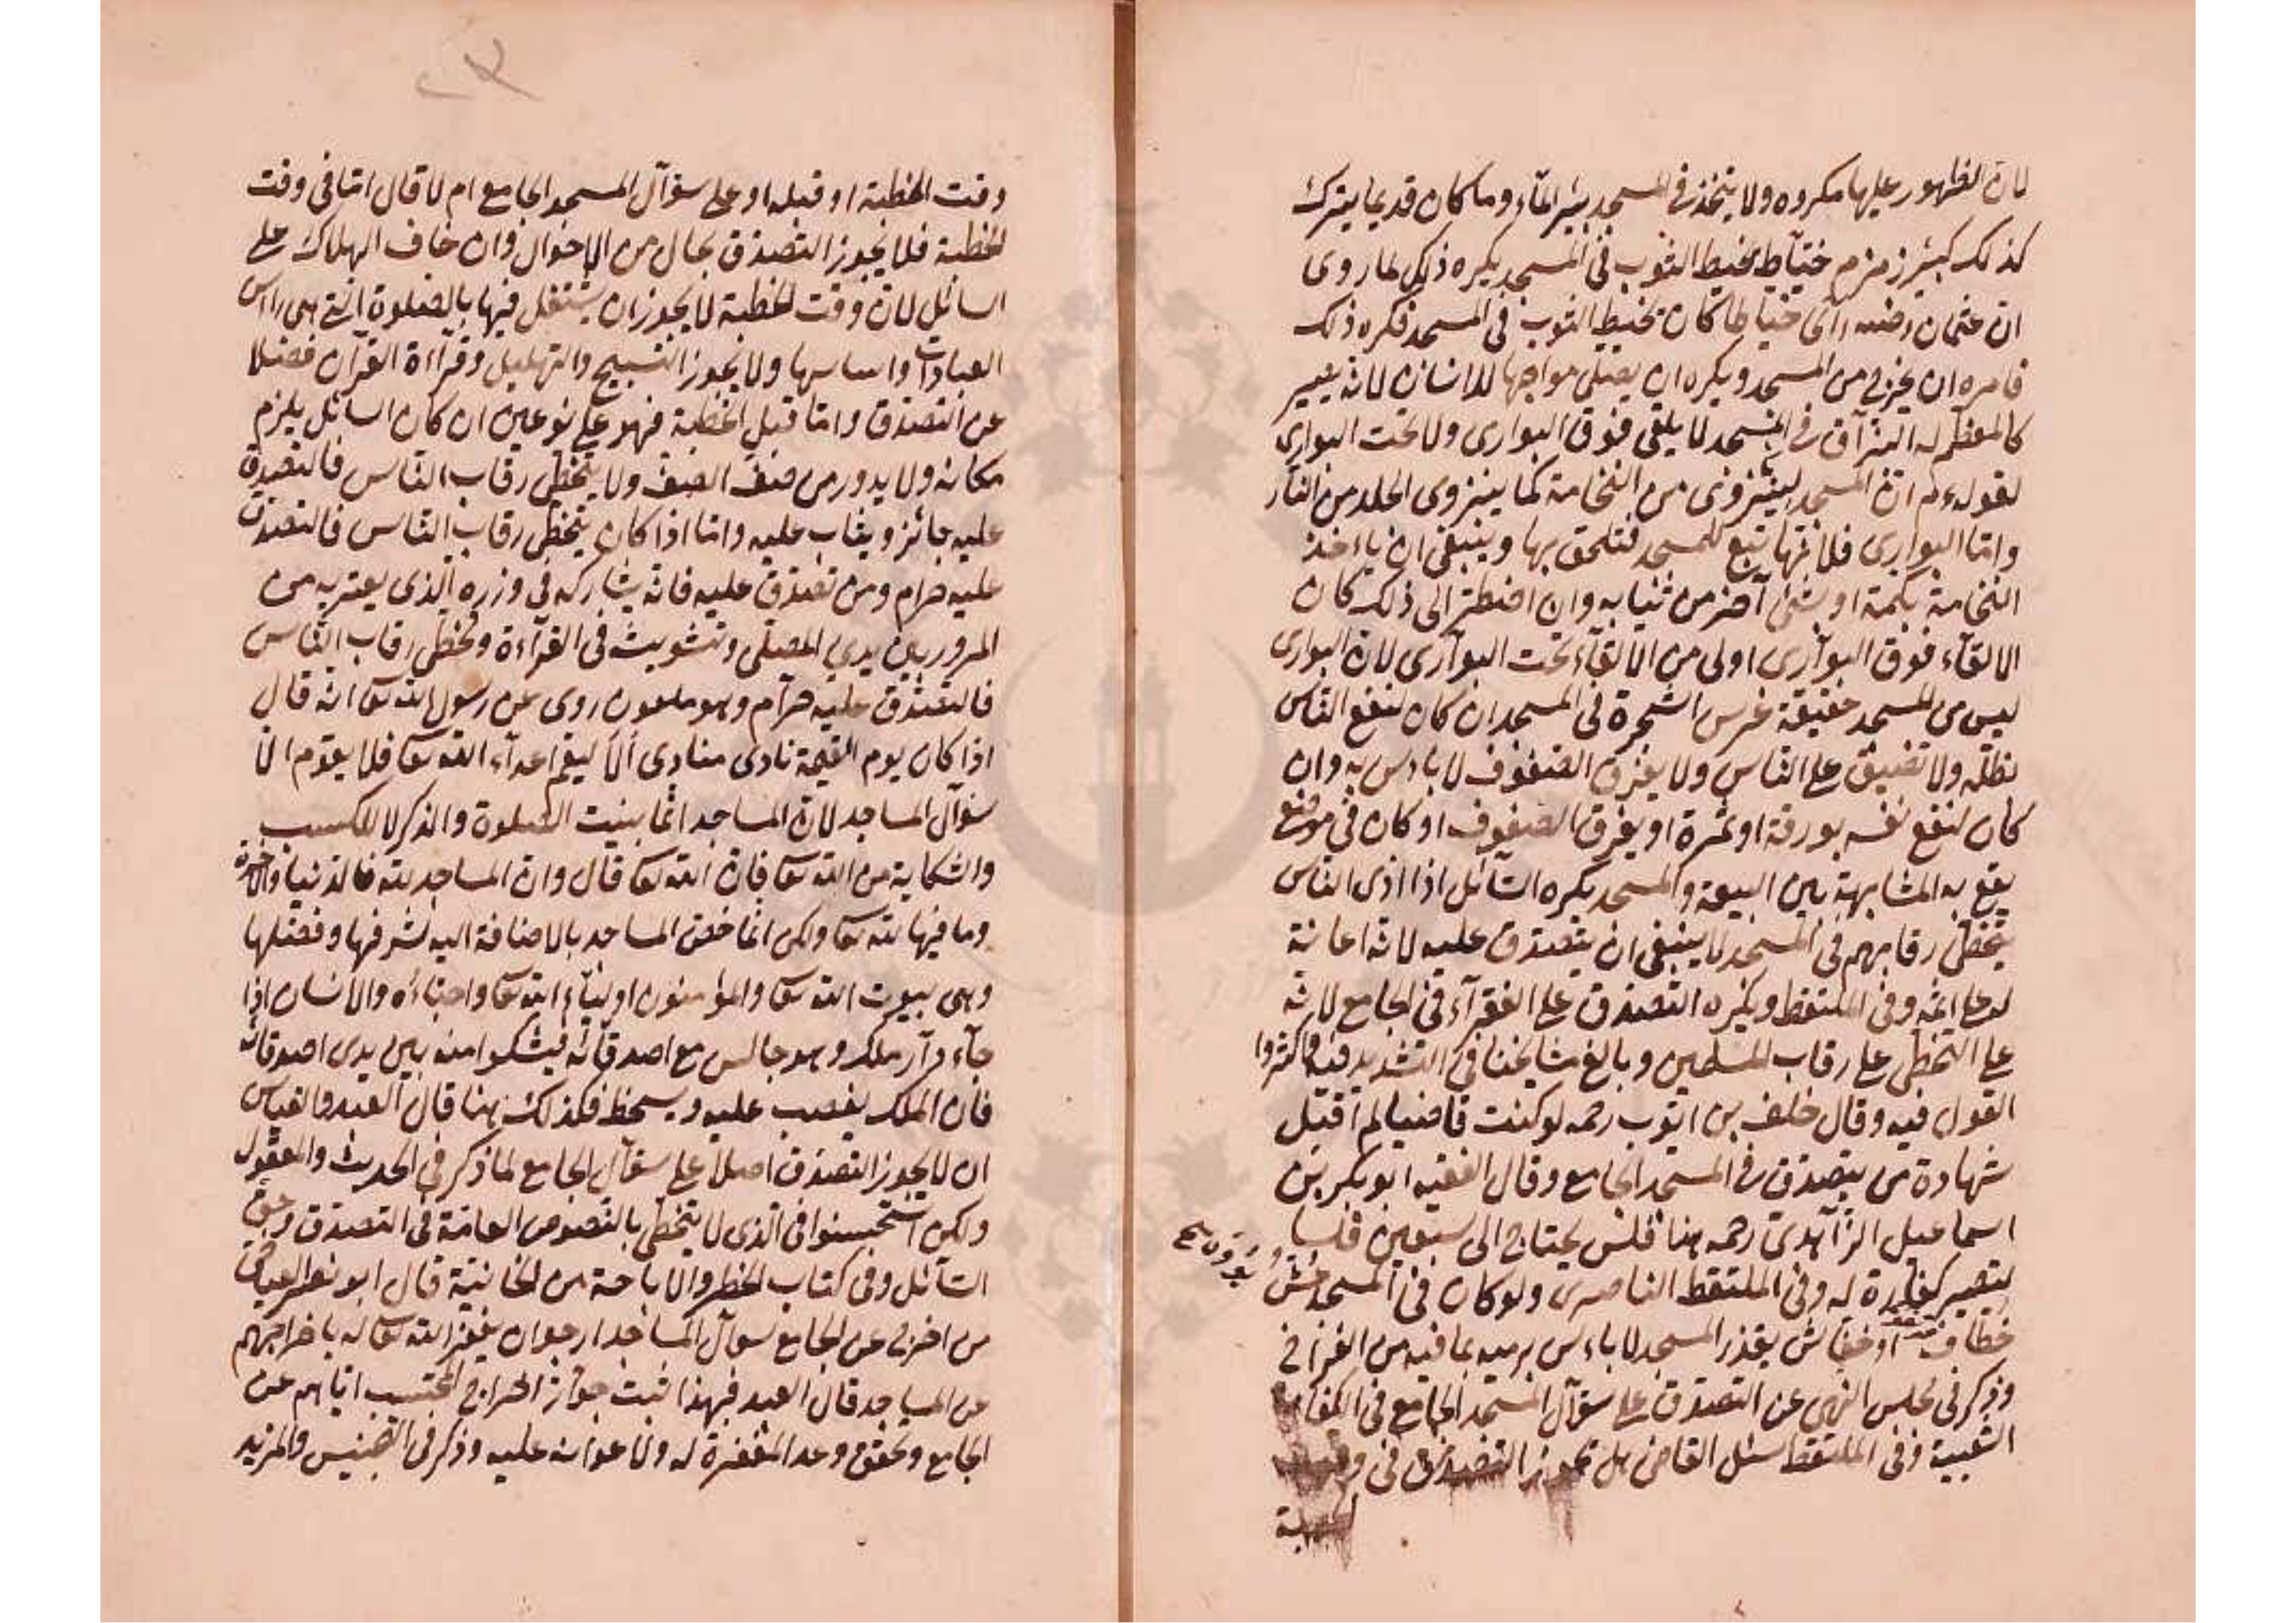 لان الظهور عليها مكروه ولا يتخذ في المسجد بئر الماء وما كان قديما يترك
كذلك كبئر زمزم خياط يخيط الثوب في المسجد يكره ذلك لما روى
ان عثمان رضه رآى خياطا كان يخيط الثوب في المسجد فكره ذلك
فامره ان يخرج من المسجد ويكره ان يصلى مواجها للانسان لانه يصير
كالمعظم له البزاق في المسجد لا يلقى فوق البوارى ولا تحت البوارى
لقوله عم ان المسجد لينزوى من النخامة كما ينزوى الجلد من النار
واما البوارى فلانها تبع للمسجد فتلحق بها وينبغى ان ياءخذ
النخامة بكمه او بشئ آخر من ثيابه وان اضطر الى ذلك كان
الالقآء فوق البوآرى اولى من الالقآء تحت البوآرى لان البوارى
ليس من المسجد حقيقة غرس الشجرة في المسجد ان كان لنفع الناس
بظله ولا تضييق على الناس ولا يفرق الصفوف لا باءس به وان
كان لنفع نفسه بورقة او ثمرة او يفرق الصفوف او كان في موضع
يقع به المشابهة بين البيعة والمسجد يكره السآئل اذا اذى الناس
بتخطى رقابهم في المسجد لا ينبغى ان يتصدق عليه لانه اعانة
له على اثمه وفى الملتقط ويكره التصدق على الفقرآء في الجامع لانه
على التخطى على رقاب المسلمين وبالغ مشايخنا في التشديد فيه واكثروا
القول فيه وقال خلف بن ايوب رحمه لو كنت قاضيا لم اقبل
شهادة من يتصدق في المسجد الجامع وقال الفقيه ابو بكر بن
اسماعيل الزآهدى رحمه هذا فلس يحتاج الى سبعين فلسا
لتصير كفارة له وفى الملتقط الناصرى ولو كان في المسجد عش
خطاف او خفاش يقذر المسجد لا باءس برميه بما فيه من الفراخ
وذكر في مجلس النهى عن التصدق على سؤآل المسجد الجامع في
الشعبية وفى الملتقط سئل القاضى هل يجوز التصدق في
وقت الخطبة او قبله او على سؤآل المسجد الجامع ام لا قال اما فى وقت
الخطبة فلا يجوز التصدق بحال من الاحوال وان خاف الهلاك على
السائل لان وقت الخطبة لا يجوز ان يشتغل فيها بالصلوة التى هى راءس
العبادات واساسها ولا يجوز التسبيح والتهليل وقرآءة القرآن فضلا
عن التصدق واما قبل الخطبة فهو على نوعين ان كان السائل يلزم
مكانه ولا يدور من صف الصف ولا يتخطى رقاب الناس فالتصدق
عليه جائز ويثاب عليه واما اذا كان يتخطى رقاب الناس فالتصدق
عليه حرام ومن تصدق عليه فانه يشاركه في وزره الذى يعتريه من
المرور بين يدي المصلى وتشويش في القرآءة وتخطى رقاب الناس
فالتصدق عليه حرآم وهو ملعون روى عن رسول الله تعا انه قال
اذا كان يوم القيمة نادى منادى ألا ليقم اعدآء الله تعا فلا يقوم الا
سؤآل المساجد لان المساجد انما بنيت للصلوة والذكر لا للكسب
والشكاية من الله تعا فان الله تعا قال وان المساجد لله فالدنيا والاخرة
وما فيها لله تعا ولكن انما خص المساجد بالاضافة اليه لشرفها وفضلها
وهى بيوت الله تعا والمؤمنون اوليآء الله تعا واحباءه والانسان اذا
جآء دآر ملك وهو جالس مع اصدقآئه فيشكوا منه بين يدى اصدقائه
فان الملك يغصب عليه ويسخط فكذلك هنا قال العبد والقياس
ان لا يجوز التصدق اصلا على سؤآل الجامع لما ذكر في الحديث والمعقول
ولكن استحسنوا في الذى لا يتخطى بالنصوص العامة في التصدق وحق
السآئل وفى كتاب الحظر والاباحة من الخانية قال ابو نصر العياضى
من اخرج عن الجامع سؤآل المساجد ارجو ان يغفر الله تعا له باخراجهم
عن المساجد قال العبد فبهذا ثبت جوآز اخراج المحتسب اياهم عن
الجامع وتحقق وعد المغفرة له ولاعوانه عليه وذكر في التجنيس والمزيد